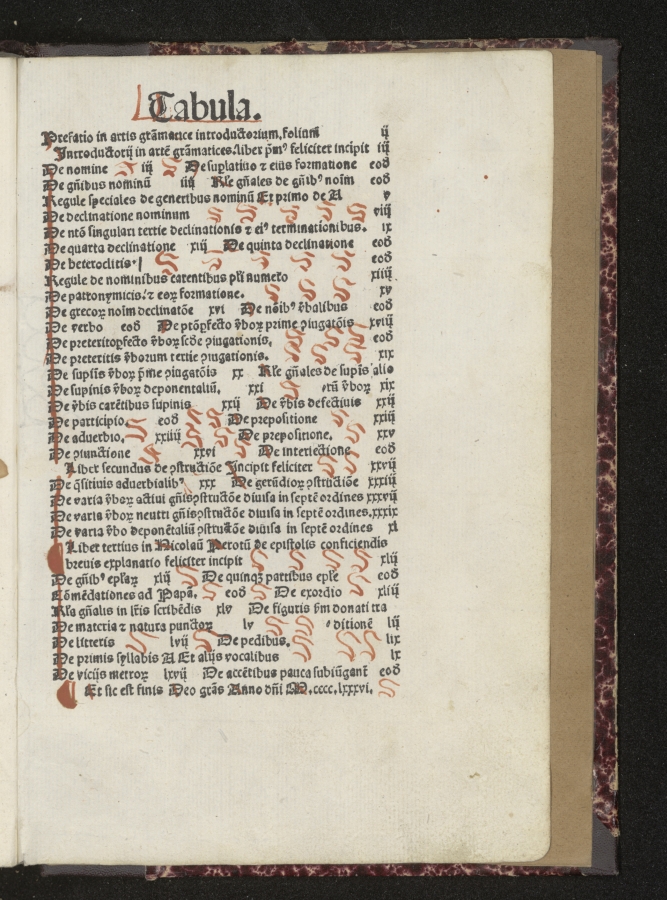 Tabula.
Prefatio in artis grāmatice introductorium, folium ij
Introductorij in artē grāmatices. liber pm⁹ feliciter incipit iij
De nomine iij De suplatiuo ⁊ eius formatione eod̄
De gñibus nominū iiij Rl̄e gñales de gñib⁹ noīm eod̄
Regule speciales de generibus nominū Et primo de A v
De declinatione nominum viij
De ntō singulari tertie declinationis ⁊ ei⁹ terminationibus. ix
De quarta declinatione xij De quinta declinatione eod̄
De heteroclitis. eod̄
Regule de nominibus carentibus plī numero xiiij
De patronymicis. ⁊ eoꝝ formatione. xv
De grecoꝝ noīm declinatōe xvi De nōib⁹ v̄balibus eod̄
De verbo eod̄ De ptōpfecto v̄boꝝ prime ꝯiugatōis xviij
De preteritopfecto v̄boꝝ scd̄e ꝯiugationis. eod̄
De preteritis v̄borum tertie ꝯiugationis. xix
De supīis v̄boꝝ pme ꝯiugatōis xx Rl̄e gñales de supīs alio
De supinis v̄boꝝ deponentaliū. xxi rū v̄boꝝ xix
De v̄bis carētibus supinis xxij De v̄bis defectiuis xxij
De participio. eod̄ De prepositione xxiij
De aduerbio. xxiiij De prepositione. xxv
De ꝯiunctione xxvi De interiectione eod̄
Liber secundus de ꝯstructiōe Incipit feliciter xxvij
De q̄sitiuis aduerbialib⁹ xxx De gerūdioꝝ ꝯstructiōe xxxiij
De varia v̄boꝝ actiui gñis ꝯstructōe diuisa in septē ordines xxxvij
De varia v̄boꝝ neutri gñis ꝯstructōe diuisa in septē ordines. xxxix
De varia v̄bo deponētaliū ꝯstructōe diuisa in septē ordines xl
Liber tertius in Nicolaū Perotū de epistolis conficiendis
breuis explanatio feliciter incipit xlij
De gñib⁹ ep̄laꝝ xlij De quinqꝫ partibus ep̄le eod̄
Cōmēdationes ad Papā. eod̄ De exordio xliij
Rl̄a gñalis in lr̄is scribēdis xlv De figuris bm donati tra
De materia ⁊ natura punctoꝝ lv ditionē lij
De litteris lvij De pedibus. lix
De primis syllabis A Et alijs vocalibus lx
De vicijs metroꝝ lxvij De accētibus pauca subiūgant̄ eod̄
Et sic est finis Deo grās Anno dñi M.cccc.lxxxvi.